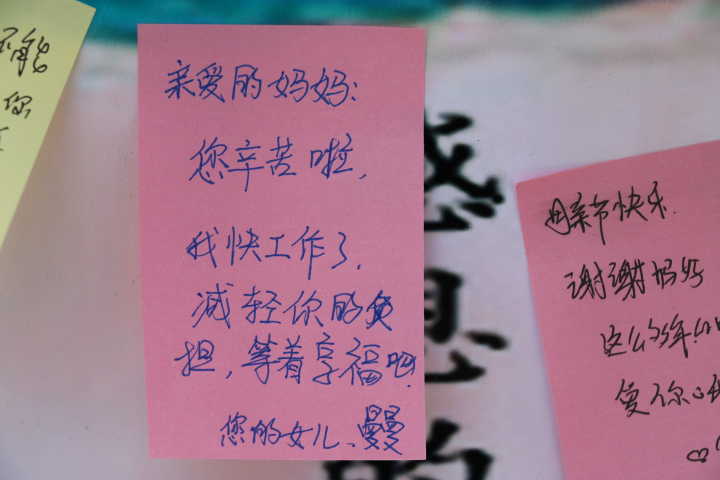 亲爱的妈妈:
您辛苦啦,
我快工作了,
减轻你的负
担,等着享福吧!
您的女儿、曼曼
母亲节快乐.
谢谢妈妈
这么多年
爱你
感
恩
的
能
你